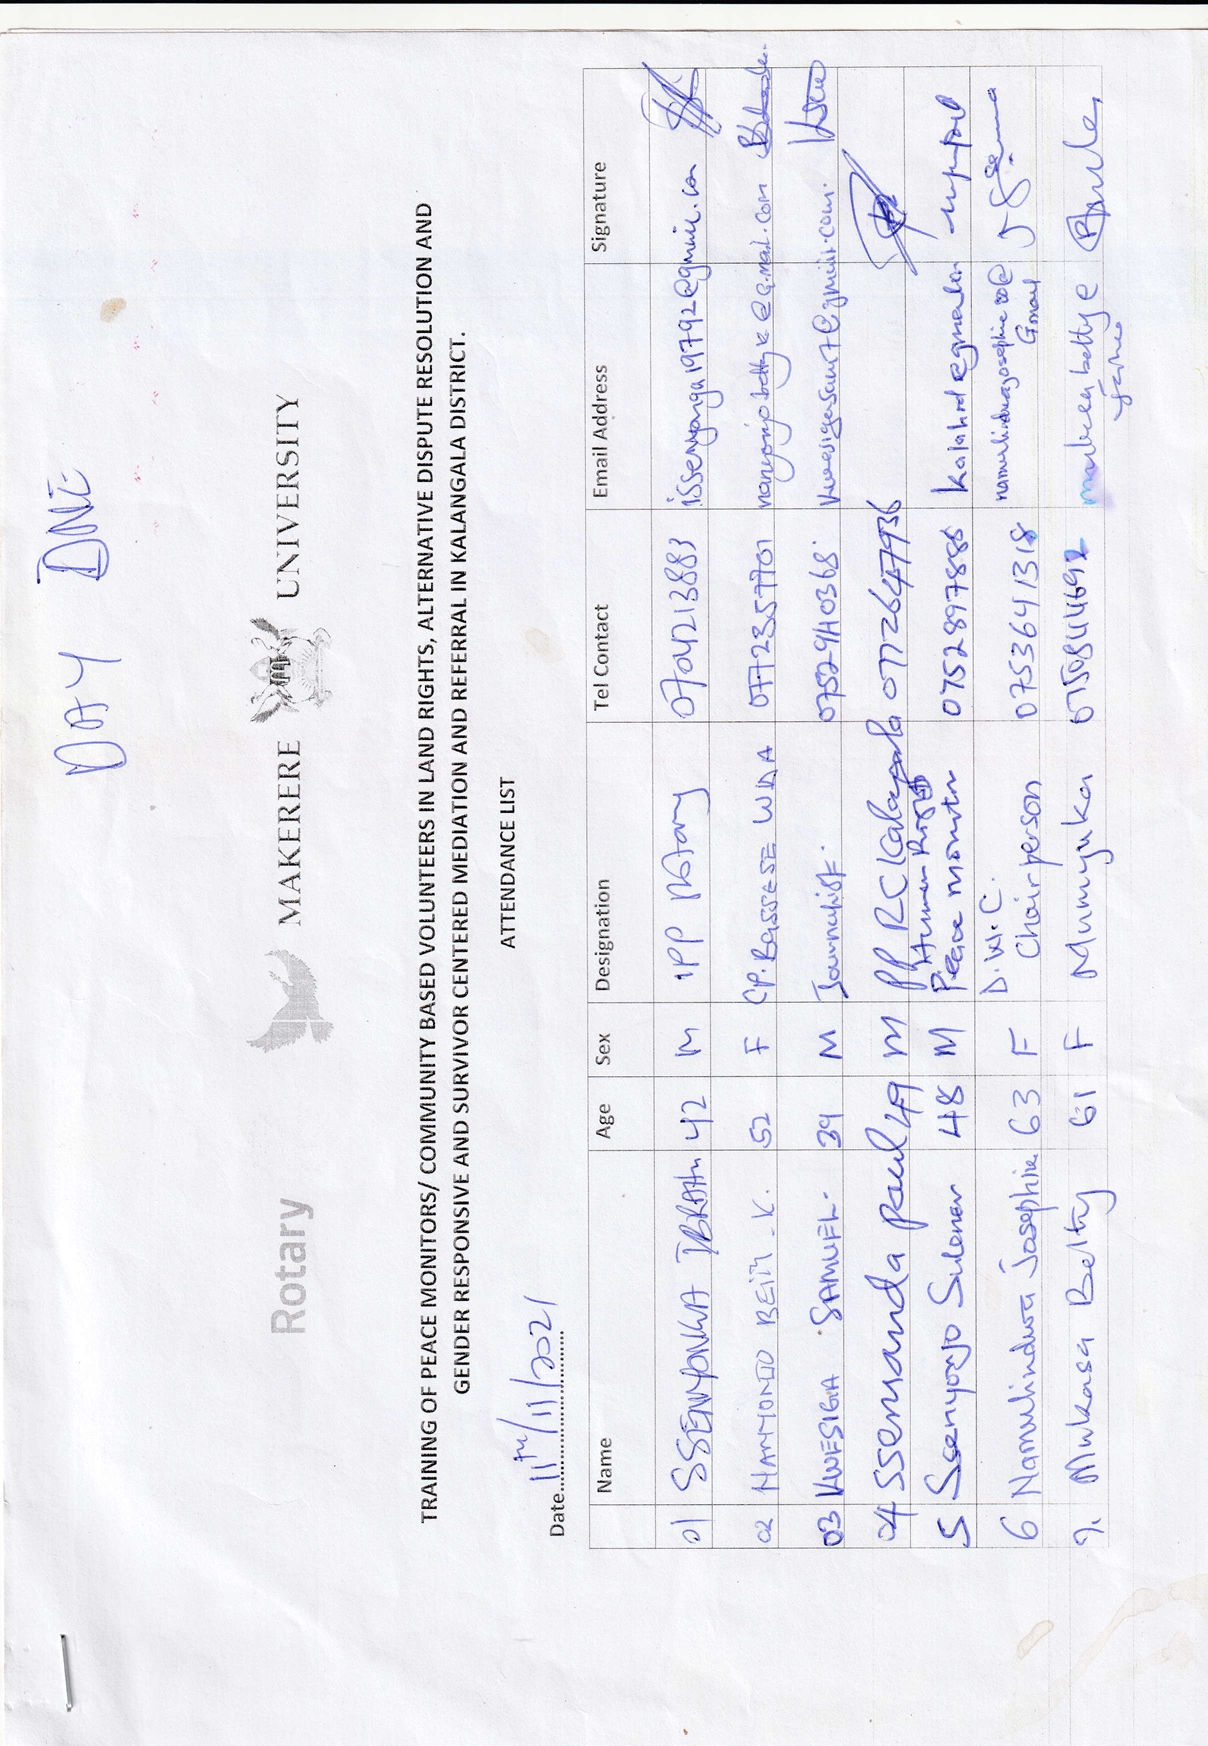 DAY ONE
Rotary MAKERERE UNIVERSITY
TRAINING OF PEACE MONITORS/ COMMUNITY BASED VOLUNTEERS IN LAND RIGHTS, ALTERNATIVE DISPUTE RESOLUTION AND
GENDER RESPONSIVE AND SURVIVOR CENTERED MEDIATION AND REFERRAL IN KALANGALA DISTRICT.
ATTENDANCE LIST
Date 11th/11/2021
Name Age Sex Designation Tel Contact Email Address Signature
01 SSENYONGA IBRAHIM 42 M IPP Rotary 0704213883 issenyonga19792@gmail.com
02 NANYONJO BETTY .K. 52 F CP. BASSESE WDA 0772357701 nanyonjobettyk@gmail.com
03 KWESIGA SAMUEL 39 M Journalist. 0752940368. kwesigasam7@gmail.com.
04 Ssemanda Paul 49 M PP RC Kalangala 0772647936
5 Ssenyonjo Suleman 48 M Human Rights
Peace monitor 0752897886
6 Namulindwa Josephine 63 F D.W.C.
Chairperson 0753641318 namulindwajosephine20@
Gmail
7. Mukasa Betty 61 F Mumyuka 0750844692